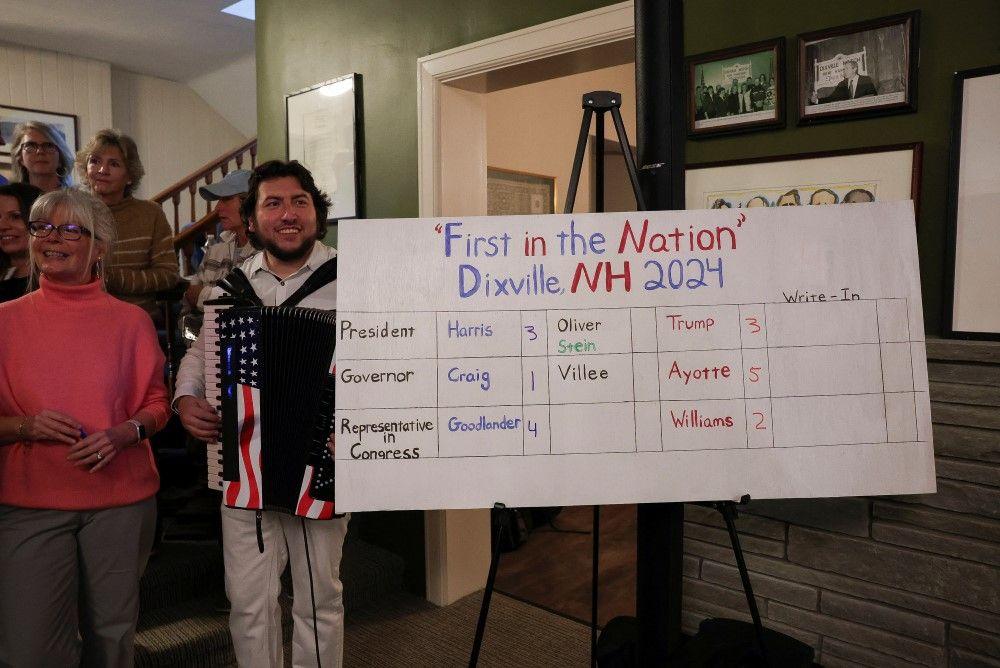 "First in the Nation"
Dixville, NH 2024
Write - In
President Harris 3 Oliver Trump 3
Stein
Governor Craig 1 Villee Ayotte 5
Representative Goodlander 4 Williams 2
in
Congress